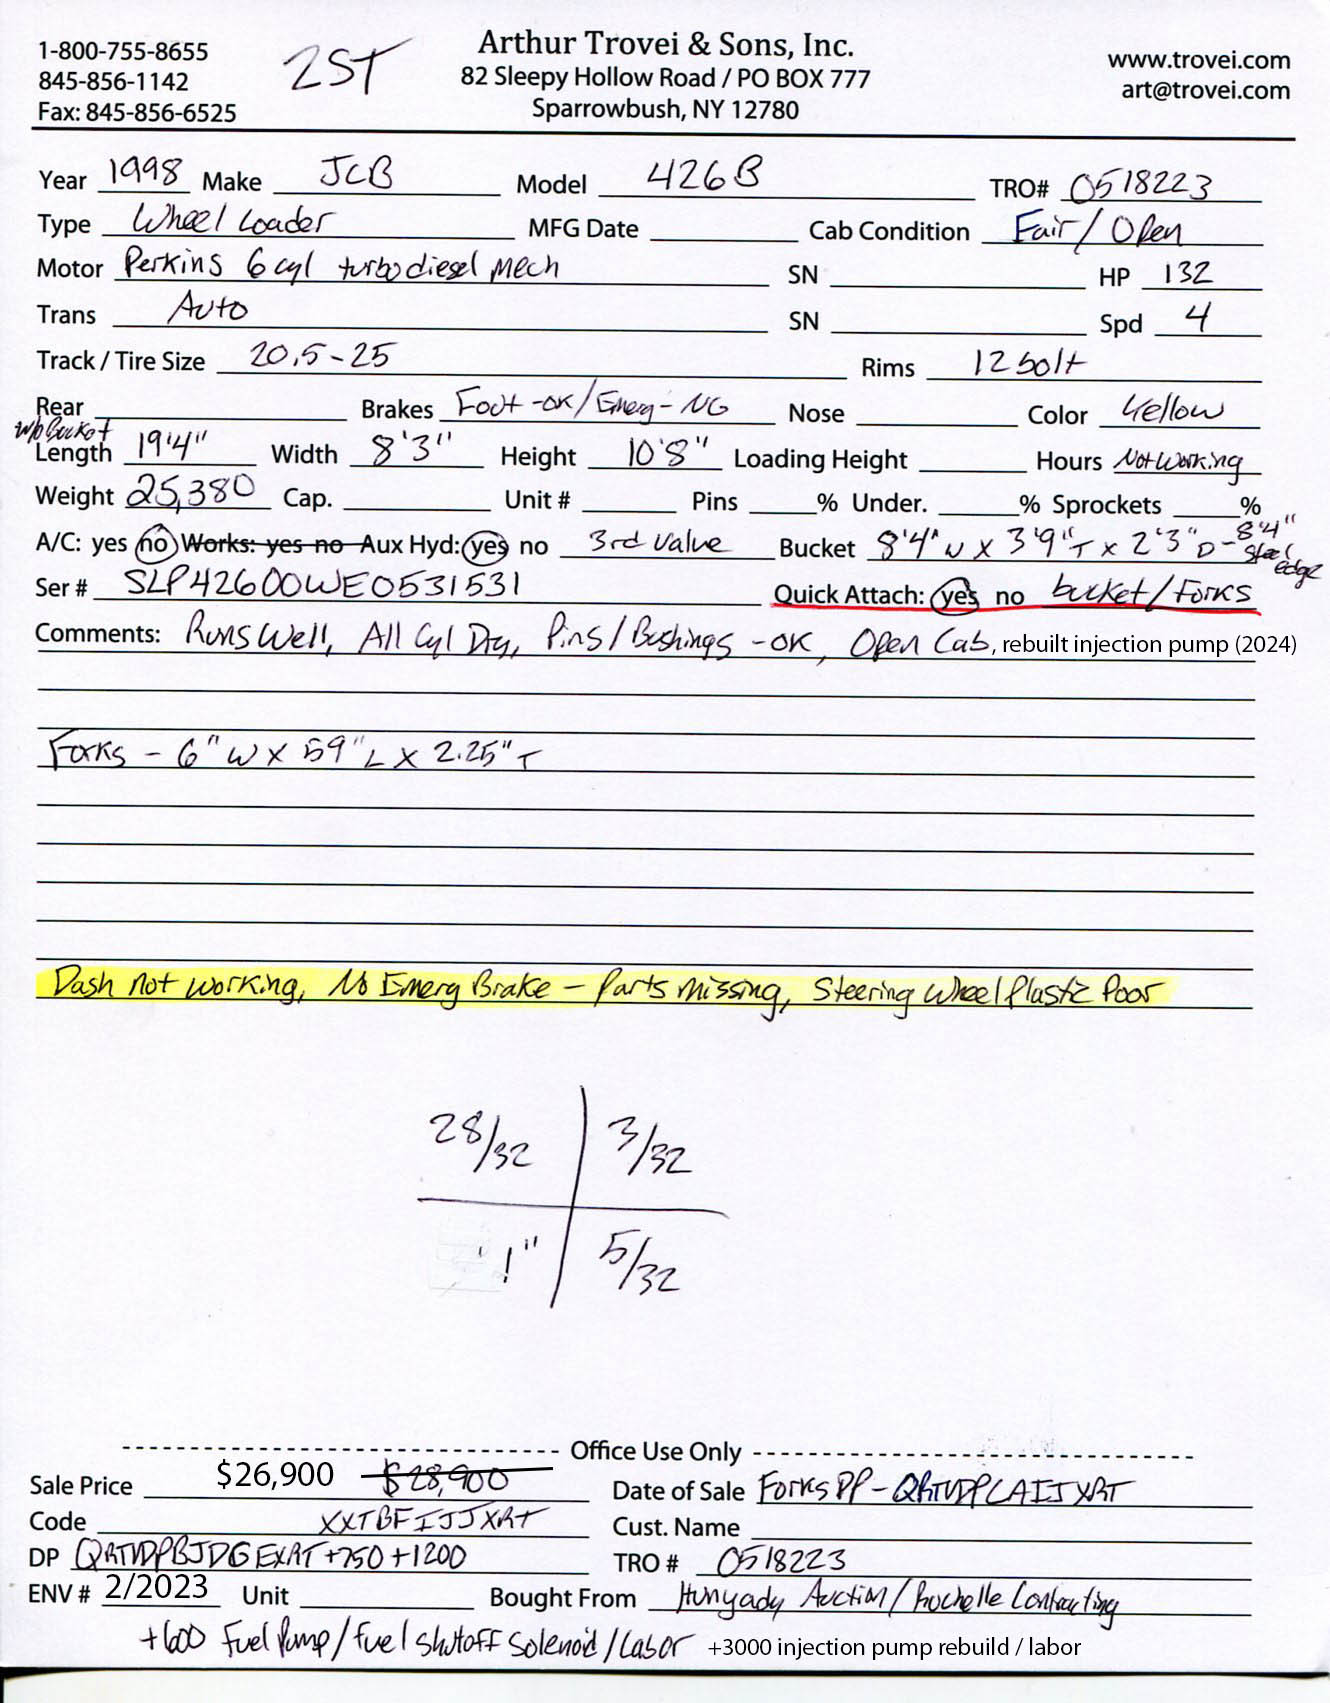 1-800-755-8655
845-856-1142
Fax: 845-856-6525
2ST
Arthur Trovei & Sons, Inc.
82 Sleepy Hollow Road / PO BOX 777
Sparrowbush, NY 12780
www.trovei.com
art@trovei.com
Year 1998 Make JCB Model 426B TRO# 0518223
Type Wheel Loader MFG Date Cab Condition Fair / Open
Motor Perkins 6 cyl turbo diesel mech SN HP 132
Trans Auto SN Spd 4
Track / Tire Size 20.5-25 Rims 12 bolt
Rear Brakes Foot -OK / Emerg - NG Nose Color Yellow
w/o Bucket
Length 19'4" Width 8'3" Height 10'8" Loading Height Hours Not Working
Weight 25,380 Cap. Unit # Pins % Under. % Sprockets %
A/C: yes no Works: yes no Aux Hyd: yes no 3rd Valve Bucket 8'4" W X 3'9" T X 2'3" D - 8'4" steel edge
Ser # SLP42600WE0531531 Quick Attach: yes no bucket / Forks
Comments: Runs Well, All Cyl Dry, Pins / Bushings - OK, Open Cab, rebuilt injection pump (2024)
Forks - 6" W X 59" L X 2.25" T
Dash not working, No Emerg Brake - Parts Missing, Steering Wheel Plastic Poor
28/32 3/32
1" 5/32
Office Use Only
Sale Price $26,900 $28,900 Date of Sale Forks DP - QRTVDPLAIJXRT
Code XXTBFIJJXRT Cust. Name
DP QRTVDPBJDGEXRT +750 +1200 TRO # 0518223
ENV # 2/2023 Unit Bought From Hunyady Auction / Rochelle Contracting
+600 Fuel Pump / fuel shutoff solenoid / Labor +3000 injection pump rebuild / labor